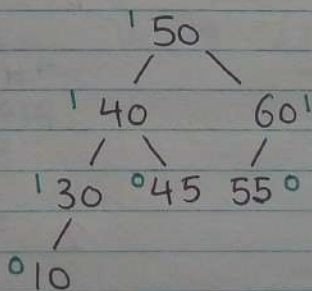 1 50
1 40 60 1
1 30 0 45 55 0
0 10